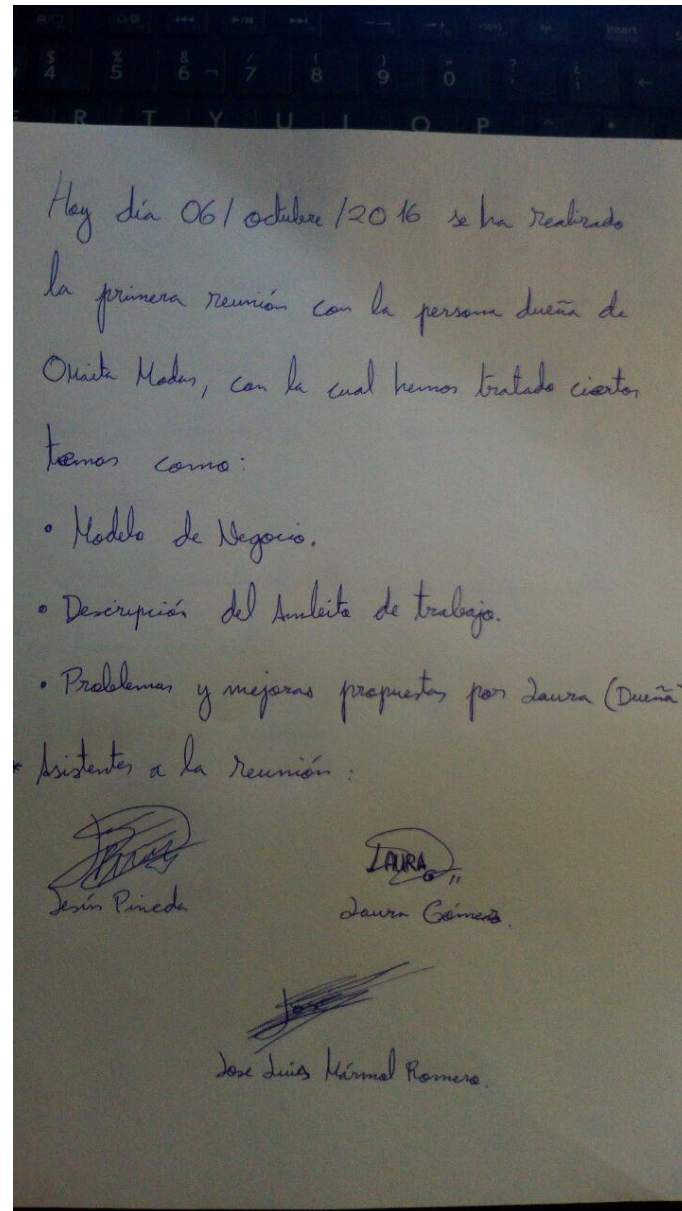 $ % & / ( ) =  ? ¿
4 5 6 ¬ 7 8 9 0 ' ¡ ←
R T Y U I O P ^
Insert
Hoy día 06/octubre/2016 se ha realizado
la primera reunión con la persona dueña de
Modas, con la cual hemos tratado ciertos
temas como:
• Modelo de Negocio.
• Descripción del Ambito de trabajo.
• Problemas y mejoras propuestas por Laura (Dueña)
* Asistentes a la reunión:
LAURA
Jesús Pineda
Laura
Jose
Jose Luis Mármol Romero.